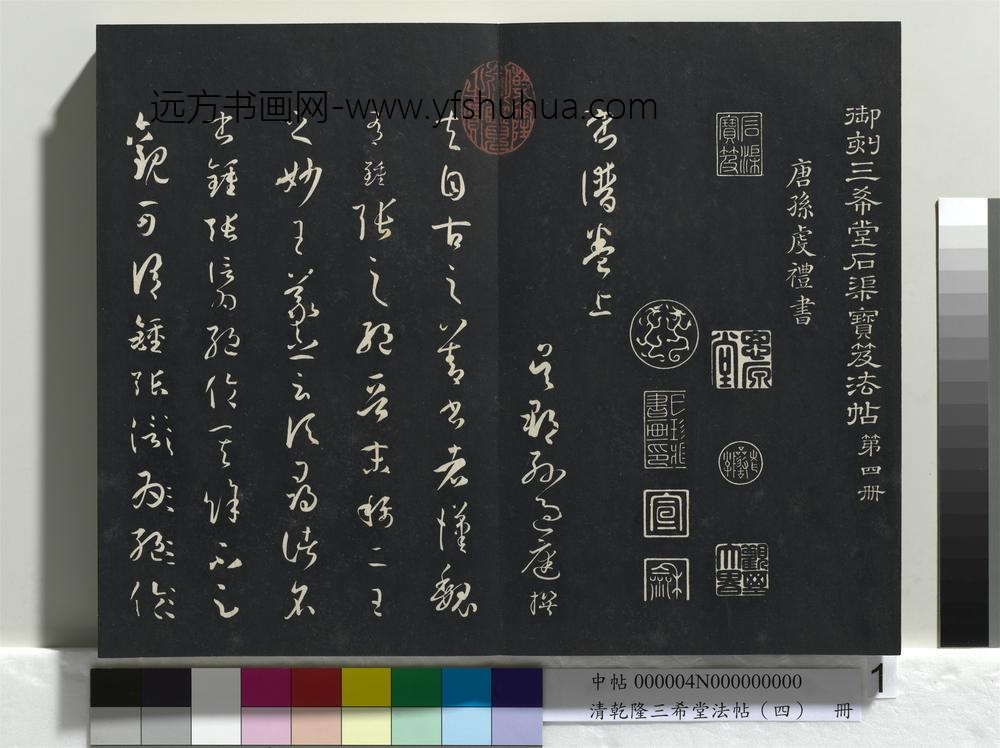 御刻三希堂石渠寶笈法帖 第四冊
唐孫虔禮書
石渠寶笈
宣
龢
書譜卷上
吳郡孫過庭撰
夫自古之善書者漢魏
有鍾張之絕晉末稱二王
之妙王羲之云頃尋諸名
書鍾張信為絕倫其餘不足
觀可謂鍾張
远方书画网-www.yfshuhua.com
中帖 000004N000000000
清乾隆三希堂法帖（四） 冊
1